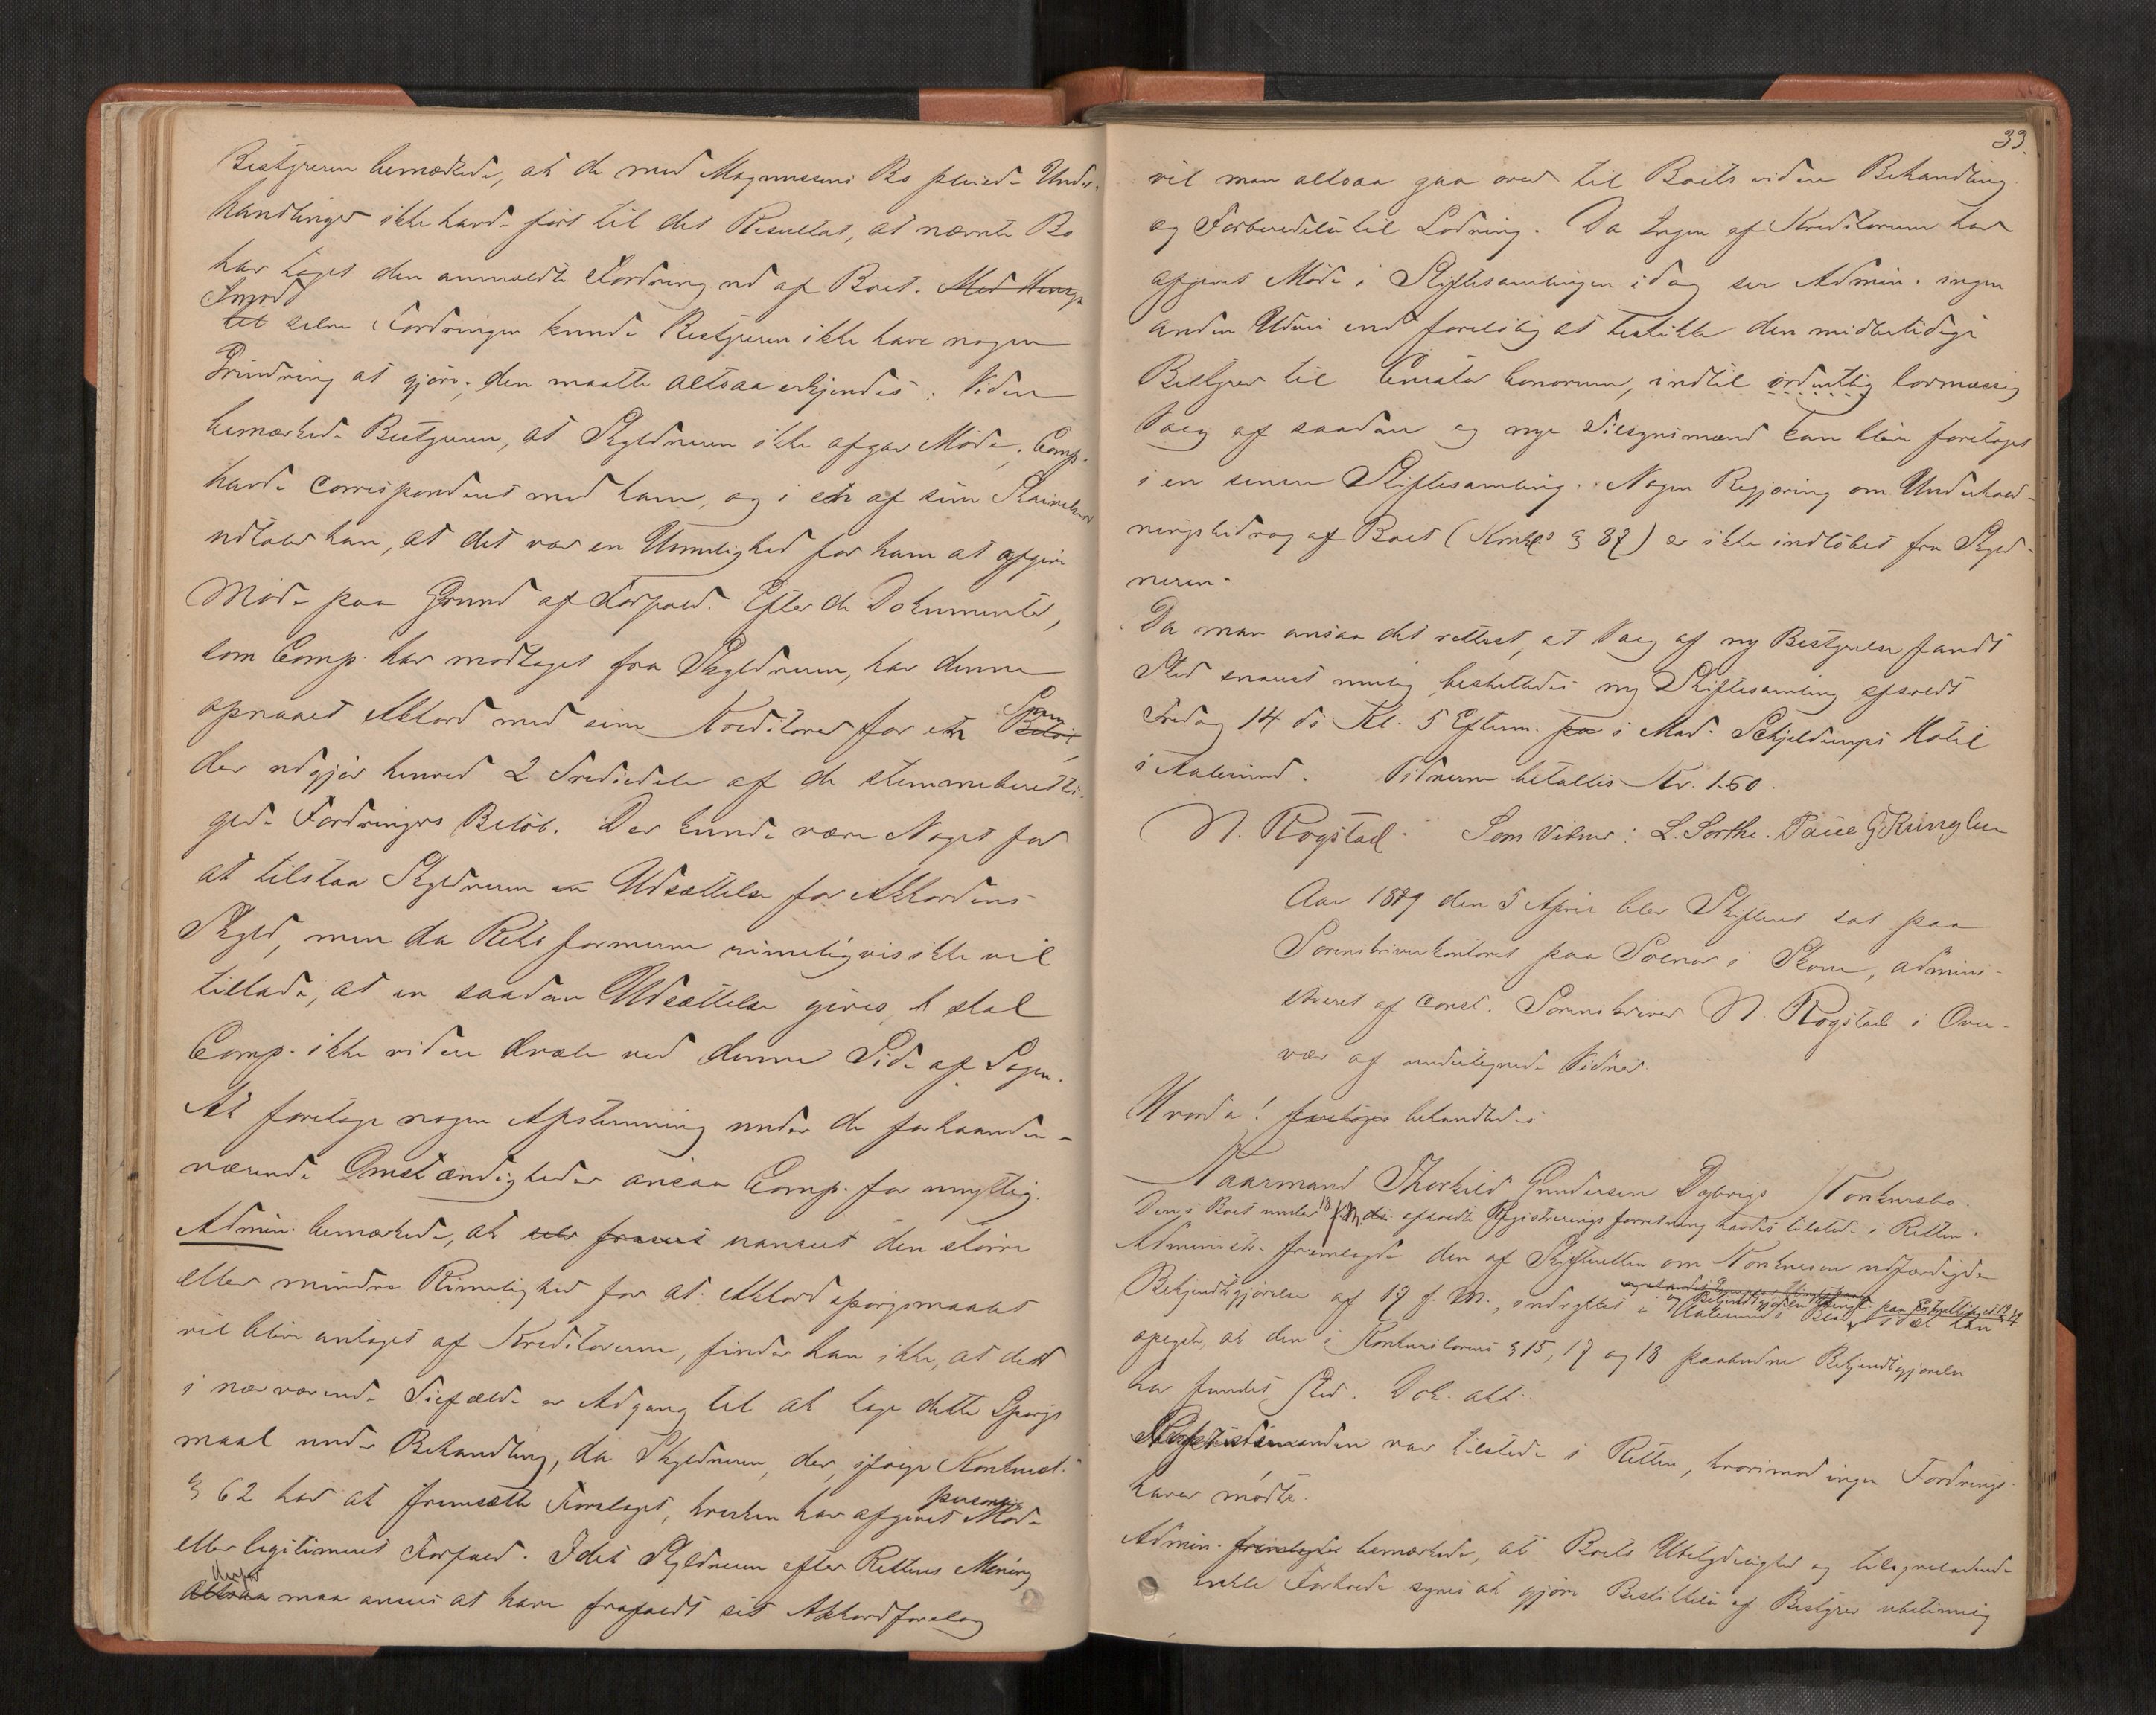 Bestyreren bemærkede, at de med Magnussens Bo pleiede Under-
handlinger ikke havde ført til det Resultat, at nævnte Bo
har taget den anmeldte Fordring ud af Boet. Med Hensyn
Imod
til selve Fordringen kunde Bestyreren ikke have nogen
Erindring at gjøre; den maatte altsaa erkjendes. Videre
bemærkede Bestyreren, at Skyldneren ikke afgav Møde; Comp.
havde correspondert med ham, og i en af sine Skrivelser
udtaler han, at det var en Umulighed for ham at afgive
Møde paa Grund af Forfald. Efter de Dokumenter,
som Comp. har modtaget fra Skyldneren, har denne
opnaaet Akkord med sine Kreditorer for en Sum
Beløb,
der udgjør henved 2 Trediedele af de stemmeberetti-
gede Fordringers Beløb. Der kunde være Noget for
at tilstaa Skyldneren en Udsættelse for Akkordens
Skyld, men da Retsformerne rimeligvis ikke vil
tillade, at en saadan Udsættelse gives, skal
Comp. ikke videre dvæle ved denne Side af Sagen.
At foretage nogen Afstemning under de forhaanden-
værende Omstændigheder ansaa Comp. for unyttig.
Admin. bemærkede, at uanseet den større
eller mindre Rimelighed for at Akkordspørgsmaalet
vil blive antaget af Kreditorerne, finder han ikke, at der
i nærværende Tilfælde er Adgang til at tage dette Spørgs
maal under Behandling, da Skyldneren, der, ifølge Konkursl.
§ 62 har at fremsætte Forslaget, hverken har afgivet personlig Møde
eller legitimeret Forfald. Idet Skyldneren efter Rettens Mening
derfor
altsaa maa ansees at have frafaldt sit Akkordforslag
33.
vil man altsaa gaa over til Boets videre Behandling
og Forberedelse til Lodning. Da Ingen af Kreditorerne har
afgivet Møde i Skiftesamlingen idag ser Admin. ingen
anden Udvei end foreløbig at beskikke den midlertidige
Bestyrer til Curator bonorum, indtil ordentlig lovmæssig
Valg af saadan og nye Tilsynsmænd kan blive foretaget
i en senere Skiftesamling. Nogen Begjæring om Underhold-
ningsbidrag af Boet (Konkl. § 37) er ikke indløbet fra Skyld-
neren.
Da man ansaa det rettest, at Valg af ny Bestyrelse fandt
Sted snarest mulig, besluttedes ny Skiftesamling afholdt
Fredag 14 ds Kl. 5 Efterm. paa i Mad. Schjeldrups Hotel
i Aalesund. Vidnerne betaltes Kr. 1.60.
N. Rogstad. Som Vidner: L. Sorthe. Paul G Ringhus
Aar 1889 den 5 April blev Skifteret sat paa
Sorenskriverkontoret paa Solnør i Skove, admini-
streret af const. Sorenskriver N. Rogstad i Over-
vær af undertegnede Vidner.
Hvorda! foretoges behandledes
Gaarmand Thorkild Gundersen Dybvigs Konkursbo.
Den i Boet under 18 f. M. afholdte Registreringsforretning havdes tilstede i Retten.
Administr. fremlagde den af Skifteretten om Konkursen udfærdigede
Bekjendtgjørelse af 17 f. M., indrykket i Aalesunds Blad
opeget, at den i Konkurslovens § 15, 17 og 18 paabudne Bekjendtgjørelse
har fundet Sted. Dok. akt.
var tilstede i Retten, hvorimod ingen Fordrings-
haver mødte.
Admin. fremlagde bemærkede, at Boets Ubetydelighed og tilsyneladende
enkle Forholde synes at gjøre Beskikkelse af Bestyrer ubetimelig